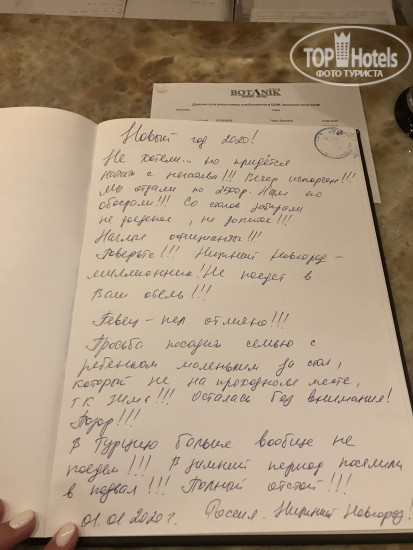 TOPHotels
ФОТО ТУРИСТА
BOTANIK
Новый год 2020!
Не хотели... но придётся
начать с негатива!!! Вечер испорчен!!!
Мы отдали по 2700р. Нам его
обосрали!!! Со столов забирали
не доеденое, не допитое!!!
Наглые официанты!!!
Поверьте!!! Нижний Новгород -
миллионник! Не поедет в
Ваш отель!!!
Певец - пел отменно!!!
Просьба посадить семью с
ребенком маленьким за стол,
который не на проходном месте,
т.к. зима!!! Осталась без внимания!
Позор!!!
В Турцию больше вообще не
поедем!!! В зимний период поселили
в подвал!!! Полный отстой!!!
01.01.2020г. Россия. Нижний Новгород!